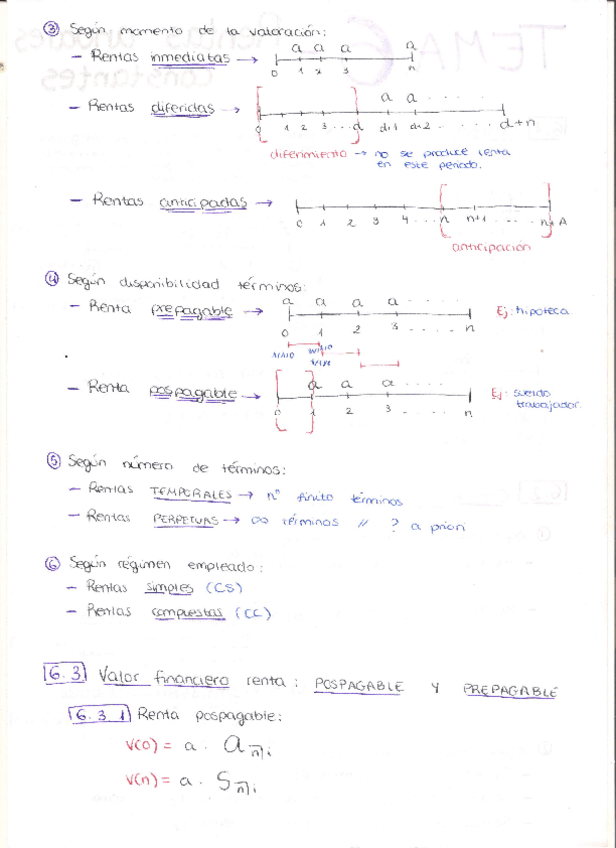 ③ Según momento de la valoración:
– Rentas inmediatas → a a a a
0 1 2 3 n
– Rentas diferidas → a a . . . . .
0 1 2 3 ... d d+1 d+2 ...... d+n
diferimiento → no se produce renta
en este periodo.
– Rentas anticipadas →
0 1 2 3 4 ... n n+1 ..... n+A
anticipación
④ Según disponibilidad términos:
– Renta prepagable → a a a a ..... Ej: hipoteca
0 1 2 3 ..... n
– Renta pospagable → a a a ..... Ej: sueldo
trabajador.
0 1 2 3 ..... n
⑤ Según número de términos:
– Rentas TEMPORALES → nº finito términos
– Rentas PERPETUAS → ∞ términos // ? a priori
⑥ Según régimen empleado:
– Rentas simples (CS)
– Rentas compuestas (CC)
6.3 Valor financiero renta: POSPAGABLE Y PREPAGABLE
6.3.1 Renta pospagable:
V(0) = a · a n̅| i
V(n) = a · S n̅| i